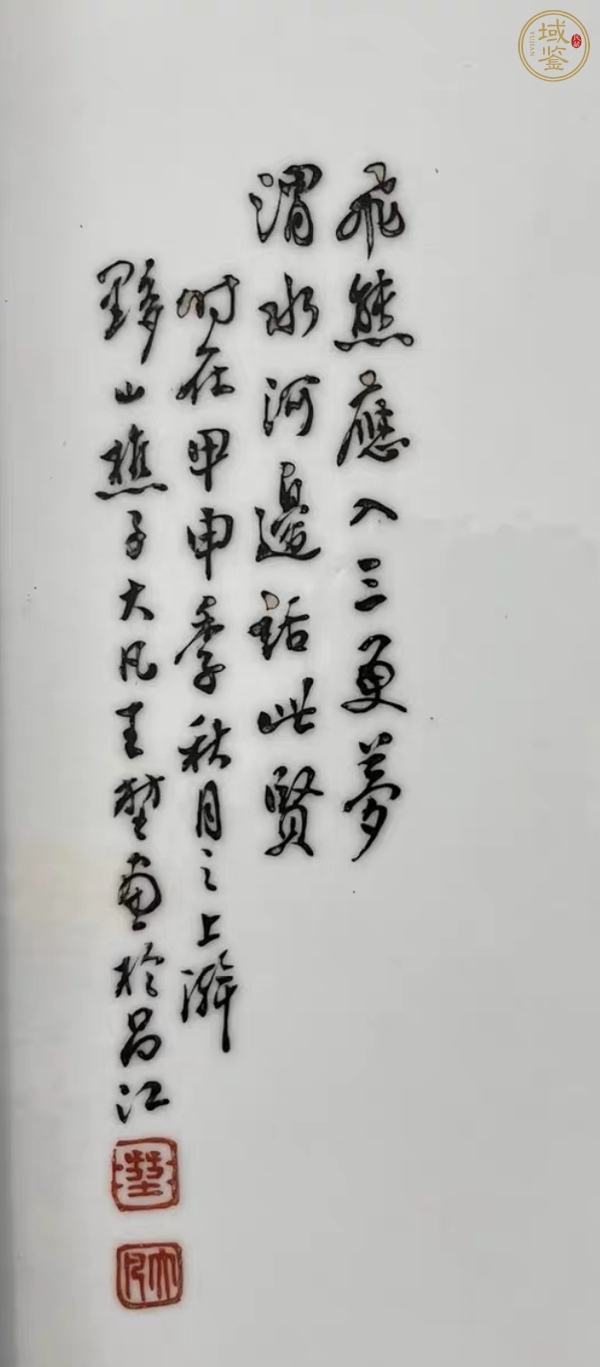 飛熊應入三更夢
渭水河邊話此賢
時在甲申季秋月之上澣
黟山樵子大凡王堃畫於昌江
堃
大凡
域鉴
YUJIAN